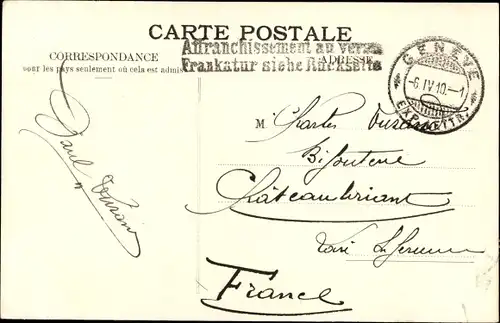 CARTE POSTALE
Affranchissement au verso
Frankatur siehe Rückseite
CORRESPONDANCE
ADRESSE
pour les pays seulement où cela est admis
GENÈVE
-6.IV.10.-1
EXP. LETTR.
M Charles
Bijouterie
Châteaubriant
France
Paul